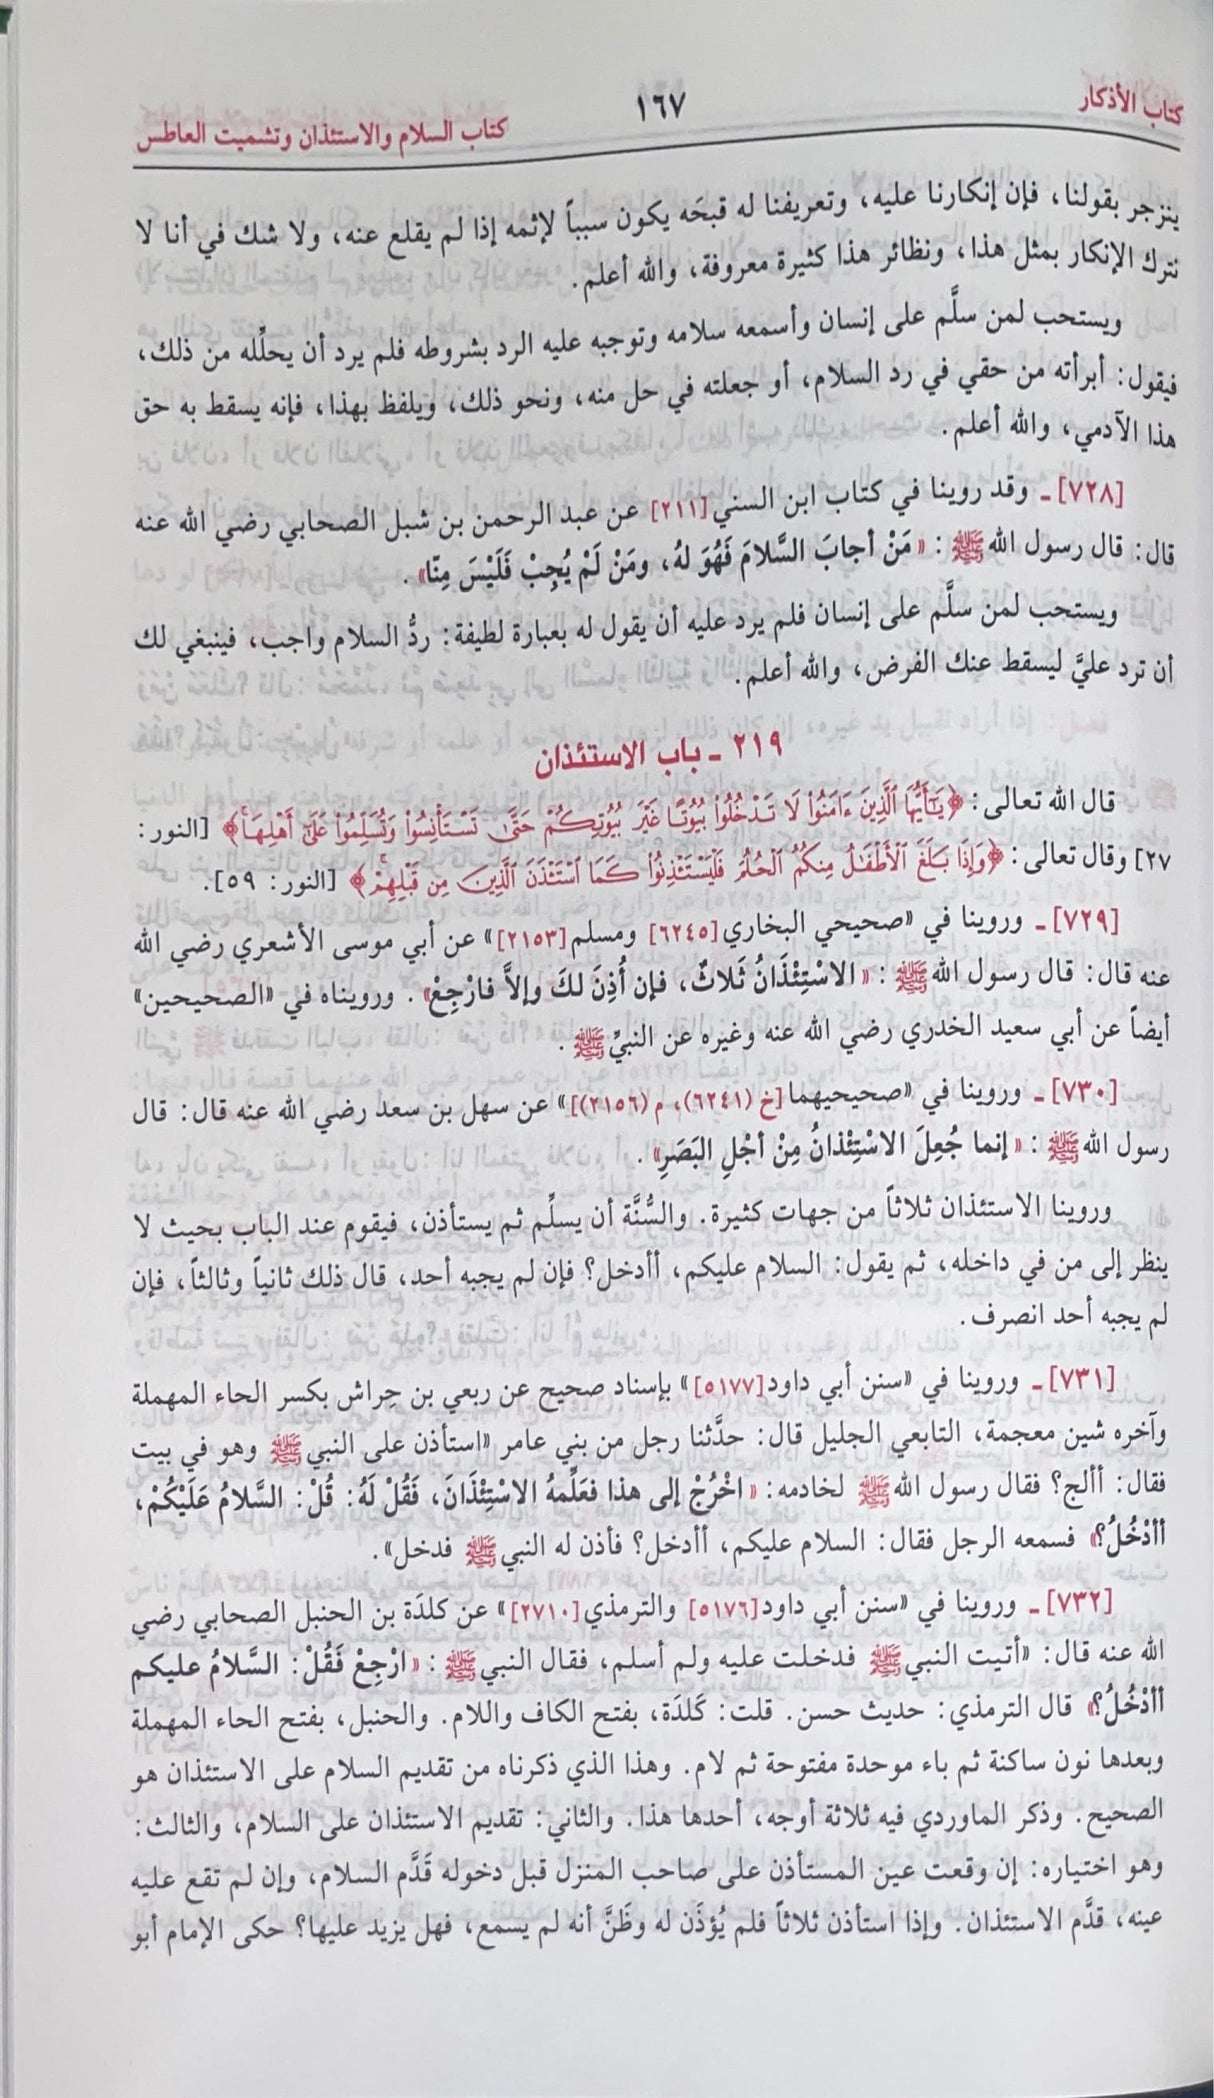 كتاب الأذكار
١٦٧
كتاب السلام والاستئذان وتشميت العاطس
ينزجر بقولنا، فإن إنكارنا عليه، وتعريفنا له قبحَه يكون سبباً لإثمه إذا لم يقلع عنه، ولا شك في أنا لا
نترك الإنكار بمثل هذا، ونظائر هذا كثيرة معروفة، والله أعلم.
ويستحب لمن سلَّم على إنسان وأسمعه سلامه وتوجبه عليه الرد بشروطه فلم يرد أن يحلِّله من ذلك،
فيقول: أبرأته من حقي في رد السلام، أو جعلته في حل منه، ونحو ذلك، ويلفظ بهذا، فإنه يسقط به حق
هذا الآدمي، والله أعلم.
[٧٢٨] ـ وقد روينا في كتاب ابن السني[٢١١] عن عبد الرحمن بن شبل الصحابي رضي الله عنه
قال: قال رسول الله ﷺ: «مَنْ أجابَ السَّلامَ فَهُوَ لهُ، ومَنْ لَمْ يُجِبْ فَلَيْسَ مِنّا».
ويستحب لمن سلَّم على إنسان فلم يرد عليه أن يقول له بعبارة لطيفة: ردُّ السلام واجب، فينبغي لك
أن ترد عليَّ ليسقط عنك الفرض، والله أعلم.
٢١٩ ـ باب الاستئذان
قال الله تعالى: ﴿يَٰٓأَيُّهَا ٱلَّذِينَ ءَامَنُواْ لَا تَدْخُلُواْ بُيُوتًا غَيْرَ بُيُوتِكُمْ حَتَّىٰ تَسْتَأْنِسُواْ وَتُسَلِّمُواْ عَلَىٰٓ أَهْلِهَاۚ﴾ [النور:
٢٧] وقال تعالى: ﴿وَإِذَا بَلَغَ ٱلْأَطْفَٰلُ مِنكُمُ ٱلْحُلُمَ فَلْيَسْتَـْٔذِنُواْ كَمَا ٱسْتَـْٔذَنَ ٱلَّذِينَ مِن قَبْلِهِمْۚ﴾ [النور: ٥٩].
[٧٢٩] ـ وروينا في «صحيحي البخاري[٦٢٤٥] ومسلم[٢١٥٣]» عن أبي موسى الأشعري رضي الله
عنه قال: قال رسول الله ﷺ: «الاسْتِئْذَانُ ثَلاثٌ، فإن أُذِنَ لكَ وإلاَّ فارْجِعْ». ورويناه في «الصحيحين»
أيضاً عن أبي سعيد الخدري رضي الله عنه وغيره عن النبيِّ ﷺ.
[٧٣٠] ـ وروينا في «صحيحيهما[خ (٦٢٤١)، م (٢١٥٦)]» عن سهل بن سعد رضي الله عنه قال: قال
رسول الله ﷺ: «إنما جُعِلَ الاسْتِئْذانُ مِنْ أجْلِ البَصَرِ».
وروينا الاستئذان ثلاثاً من جهات كثيرة. والسُّنَّة أن يسلِّم ثم يستأذن، فيقوم عند الباب بحيث لا
ينظر إلى من في داخله، ثم يقول: السلام عليكم، أأدخل؟ فإن لم يجبه أحد، قال ذلك ثانياً وثالثاً، فإن
لم يجبه أحد انصرف.
[٧٣١] ـ وروينا في «سنن أبي داود[٥١٧٧]» بإسناد صحيح عن ربعي بن حِراش بكسر الحاء المهملة
وآخره شين معجمة، التابعي الجليل قال: حدَّثنا رجل من بني عامر «استأذن على النبي ﷺ وهو في بيت
فقال: أألج؟ فقال رسول الله ﷺ لخادمه: «اخْرُجْ إلى هذا فعَلِّمهُ الاسْتِئْذَانَ، فَقُلْ لَهُ: قُلْ: السَّلامُ عَلَيْكُمْ،
أأدْخُلُ؟» فسمعه الرجل فقال: السلام عليكم، أأدخل؟ فأذن له النبي ﷺ فدخل».
[٧٣٢] ـ وروينا في «سنن أبي داود[٥١٧٦] والترمذي[٢٧١٠]» عن كلدَة بن الحنبل الصحابي رضي
الله عنه قال: «أتيت النبي ﷺ فدخلت عليه ولم أسلم، فقال النبي ﷺ: «ارْجِعْ فَقُلْ: السَّلامُ عليكم
أأدْخُلُ؟» قال الترمذي: حديث حسن. قلت: كَلَدَة، بفتح الكاف واللام. والحنبل، بفتح الحاء المهملة
وبعدها نون ساكنة ثم باء موحدة مفتوحة ثم لام. وهذا الذي ذكرناه من تقديم السلام على الاستئذان هو
الصحيح. وذكر الماوردي فيه ثلاثة أوجه، أحدها هذا. والثاني: تقديم الاستئذان على السلام، والثالث:
وهو اختياره: إن وقعت عين المستأذن على صاحب المنزل قبل دخوله قَدَّم السلام، وإن لم تقع عليه
عينه، قدَّم الاستئذان. وإذا استأذن ثلاثاً فلم يُؤذَن له وظَنَّ أنه لم يسمع، فهل يزيد عليها؟ حكى الإمام أبو